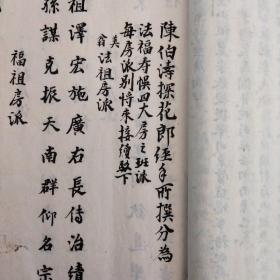 陳伯濤探花郎經手所撰分為
法福寿惖四大房之班派
每房派別将來接續臨下
美翁法祖房派
祖澤宏施廣右長傳治績
孫謀克振天南群仰名宗
福祖房派